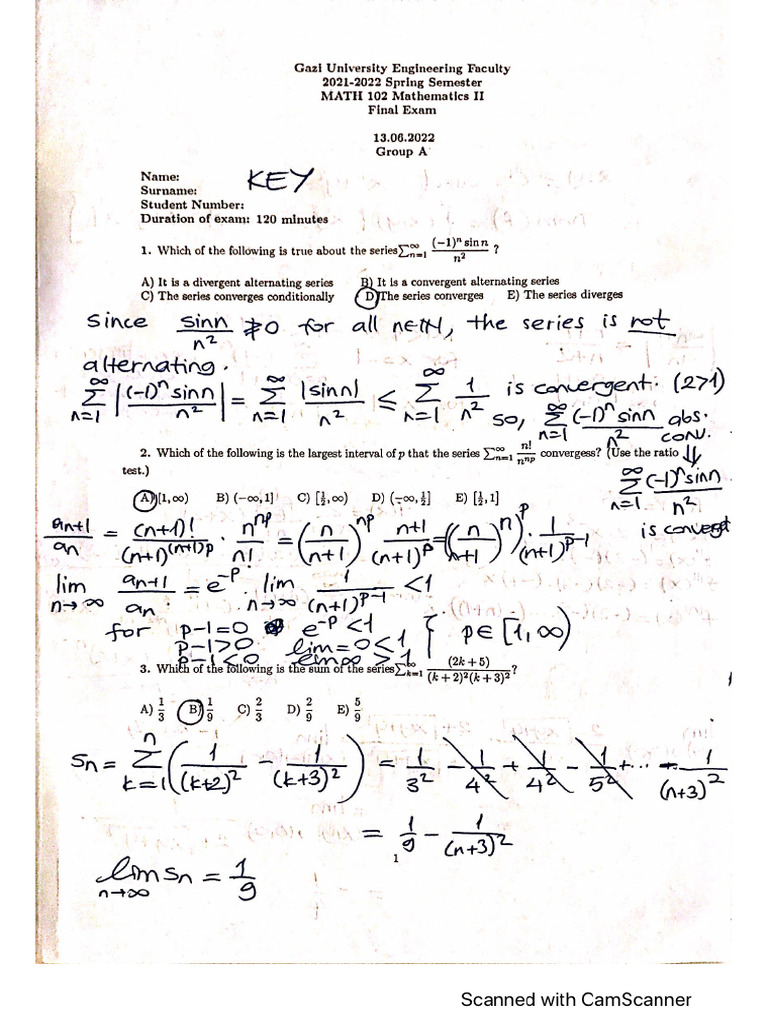 Gazi University Engineering Faculty
2021-2022 Spring Semester
MATH 102 Mathematics II
Final Exam
13.06.2022
Group A
Name: KEY
Surname:
Student Number:
Duration of exam: 120 minutes
1. Which of the following is true about the series ∑_{n=1}^{∞} \frac{(-1)^n sin n}{n^2} ?
A) It is a divergent alternating series B) It is a convergent alternating series
C) The series converges conditionally D) The series converges E) The series diverges
Since \frac{sinn}{n^2} ≱ 0 for all n∈ℕ, the series is not
alternating.
∑_{n=1}^{∞} |\frac{(-1)^n sinn}{n^2}| = ∑_{n=1}^{∞} \frac{|sinn|}{n^2} ≤ ∑_{n=1}^{∞} \frac{1}{n^2} is convergent. (2>1)
so, ∑_{n=1}^{∞} \frac{(-1)^n sinn}{n^2} abs. conv.
⇓
∑_{n=1}^{∞} \frac{(-1)^n sinn}{n^2}
is convergent
2. Which of the following is the largest interval of p that the series ∑_{n=1}^{∞} \frac{n!}{n^{np}} convergess? (Use the ratio
test.)
A) [1,∞) B) (-∞,1] C) [\frac{1}{2},∞) D) (-∞,\frac{1}{2}] E) [\frac{1}{2},1]
\frac{a_{n+1}}{a_n} = \frac{(n+1)!}{(n+1)^{(n+1)p}} · \frac{n^{np}}{n!} = (\frac{n}{n+1})^{np} \frac{n+1}{(n+1)^p} = ((\frac{n}{n+1})^n)^p · \frac{1}{(n+1)^{p-1}}
lim_{n→∞} \frac{a_{n+1}}{a_n} = e^{-p} · lim_{n→∞} \frac{1}{(n+1)^{p-1}} < 1
for p-1=0 e^{-p}<1
p-1>0 lim=0<1 } p∈[1,∞)
p-1<0 lim ∞ > 1
3. Which of the following is the sum of the series ∑_{k=1}^{∞} \frac{(2k+5)}{(k+2)^2(k+3)^2} ?
A) \frac{1}{3} B) \frac{1}{9} C) \frac{2}{3} D) \frac{2}{9} E) \frac{5}{9}
S_n = ∑_{k=1}^{n} (\frac{1}{(k+2)^2} - \frac{1}{(k+3)^2}) = \frac{1}{3^2} - \frac{1}{4^2} + \frac{1}{4^2} - \frac{1}{5^2} + ... - \frac{1}{(n+3)^2}
= \frac{1}{9} - \frac{1}{(n+3)^2}
1
lim_{n→∞} S_n = \frac{1}{9}
Scanned with CamScanner